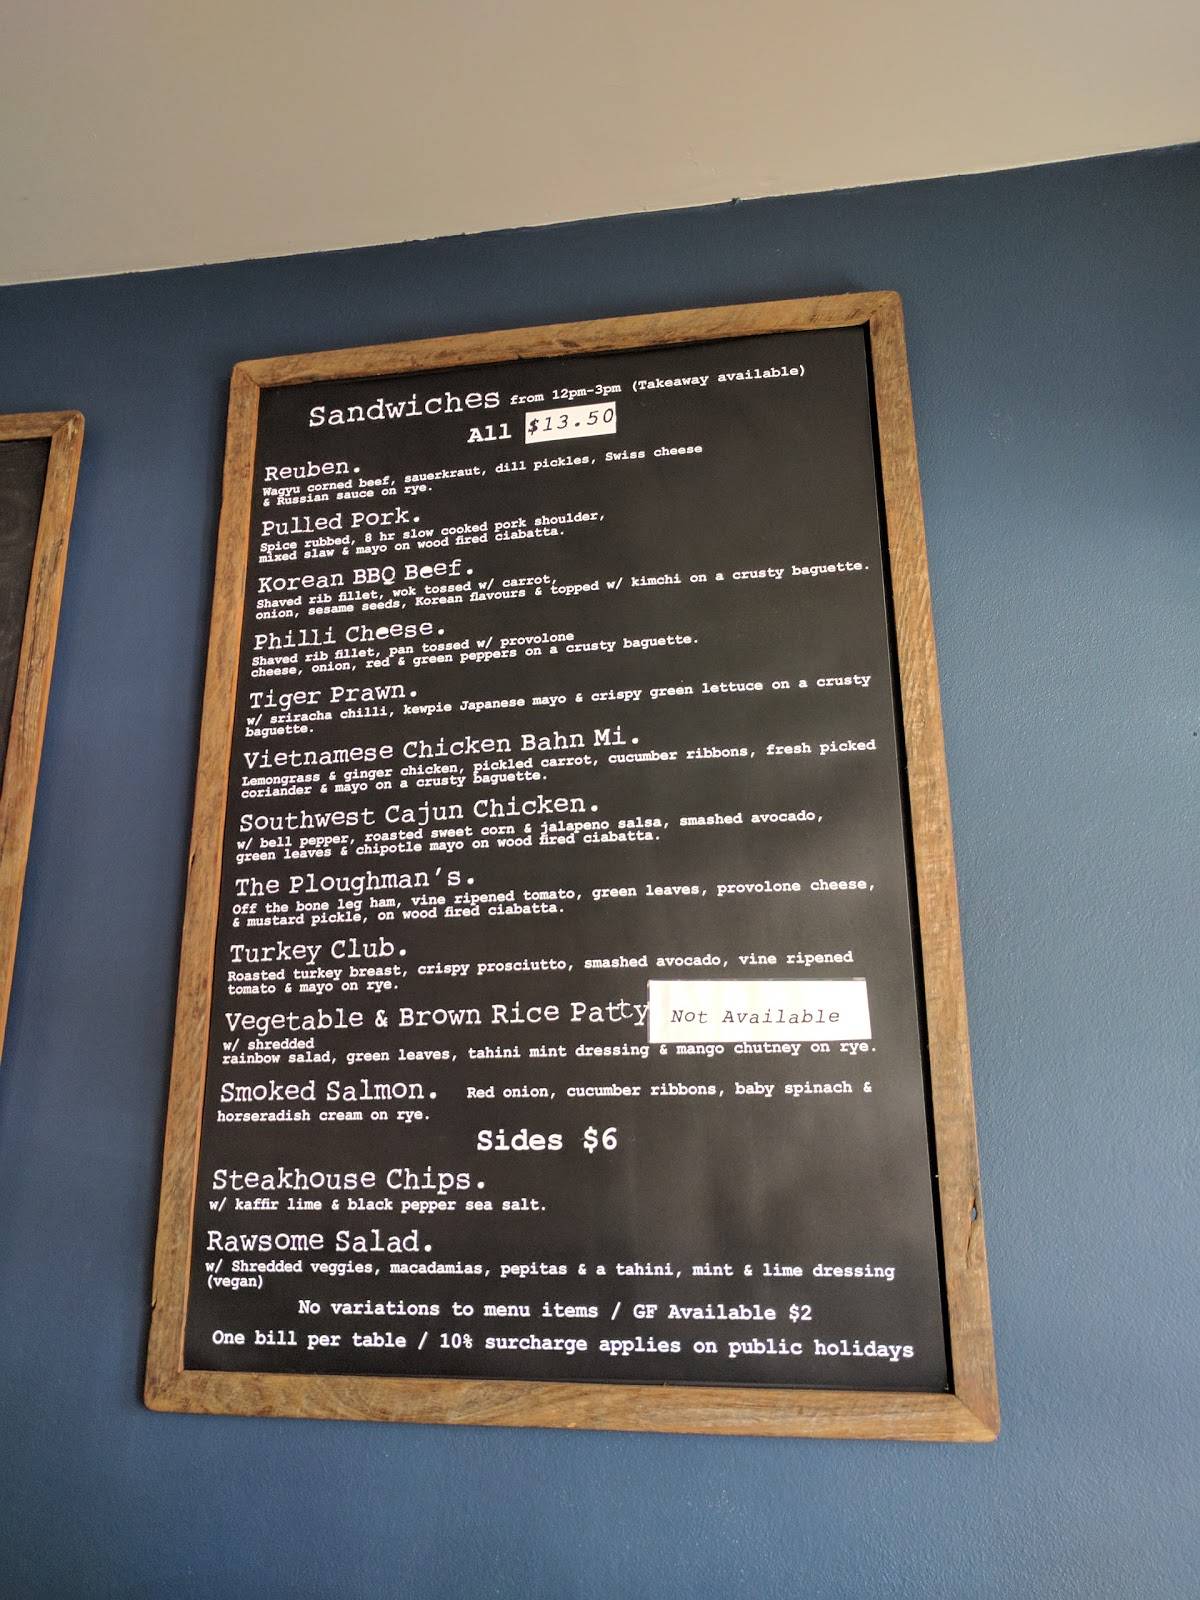 Sandwiches from 12pm-3pm (Takeaway available)
All $13.50
Reuben.
Wagyu corned beef, sauerkraut, dill pickles, Swiss cheese
& Russian sauce on rye.
Pulled Pork.
Spice rubbed, 8 hr slow cooked pork shoulder,
mixed slaw & mayo on wood fired ciabatta.
Korean BBQ Beef.
Shaved rib fillet, wok tossed w/ carrot,
onion, sesame seeds, Korean flavours & topped w/ kimchi on a crusty baguette.
Philli Cheese.
Shaved rib fillet, pan tossed w/ provolone
cheese, onion, red & green peppers on a crusty baguette.
Tiger Prawn.
w/ sriracha chilli, kewpie Japanese mayo & crispy green lettuce on a crusty
baguette.
Vietnamese Chicken Bahn Mi.
Lemongrass & ginger chicken, pickled carrot, cucumber ribbons, fresh picked
coriander & mayo on a crusty baguette.
Southwest Cajun Chicken.
w/ bell pepper, roasted sweet corn & jalapeno salsa, smashed avocado,
green leaves & chipotle mayo on wood fired ciabatta.
The Ploughman's.
Off the bone leg ham, vine ripened tomato, green leaves, provolone cheese,
& mustard pickle, on wood fired ciabatta.
Turkey Club.
Roasted turkey breast, crispy prosciutto, smashed avocado, vine ripened
tomato & mayo on rye.
Vegetable & Brown Rice Patty Not Available
w/ shredded
rainbow salad, green leaves, tahini mint dressing & mango chutney on rye.
Smoked Salmon. Red onion, cucumber ribbons, baby spinach &
horseradish cream on rye.
Sides $6
Steakhouse Chips.
w/ kaffir lime & black pepper sea salt.
Rawsome Salad.
w/ Shredded veggies, macadamias, pepitas & a tahini, mint & lime dressing
(vegan)
No variations to menu items / GF Available $2
One bill per table / 10% surcharge applies on public holidays